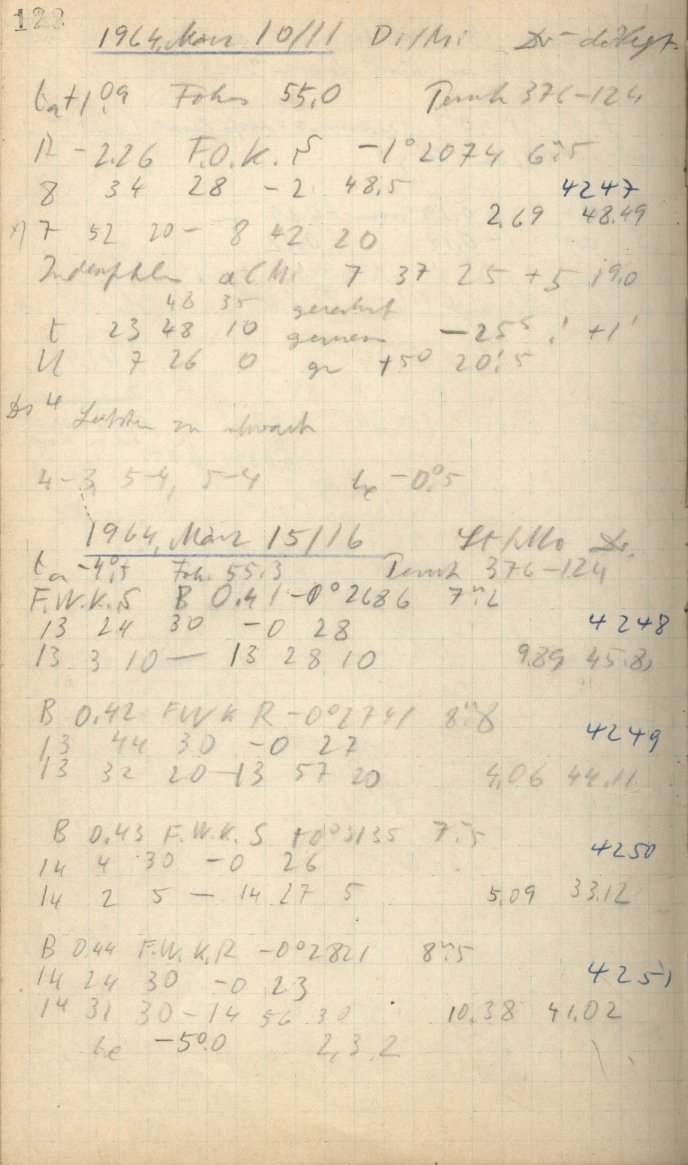 122
1964, März 10/11 Di/Mi Dr
ta +1°,9 Fokus 55,0 376-124
R -2.26 F.O.K.S -1°2074 6m,5
8 34 28 -2 48,5 4247
2,69 48,49
7 52 20 - 8 42 20
7 37 25 +5 19,0
48 35 gerechnet
t 23 48 10 gemessen +1'
7 26 0 +5° 20',5
zu schwach
4-3, 5-4, 5-4 te -0°,5
1964, März 15/16 Dr.
ta -4°,5 Fok. 55,3 376-124
F.W.K.S B 0.41 -0°2686 7m,6
13 24 30 -0 28 4248
13 3 10 - 13 28 10 9,89 45,8
B 0.42 F W K R -0°2741 8m,8
13 44 30 -0 27 4249
13 32 20 - 13 57 20 4,06 44,11
B 0.43 F.W.K.S +0°3135 7m,5
14 4 30 -0 26 4250
14 2 5 - 14 27 5 5,09 33,12
B 0.44 F.W.K.R -0°2821 8m,5
14 24 30 -0 23 4251
14 31 30 - 14 56 30 10,38 41,02
te -5°,0 2,3,2